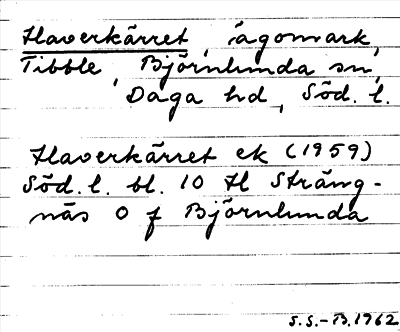 Haverkärret, ägomark,
Tibble, Björnlunda sn,
Daga hd, Söd. l.
Haverkärret ek (1959)
Söd. l. bl. 10 H Sträng-
näs O f Björnlunda
S.S.-B. 1962